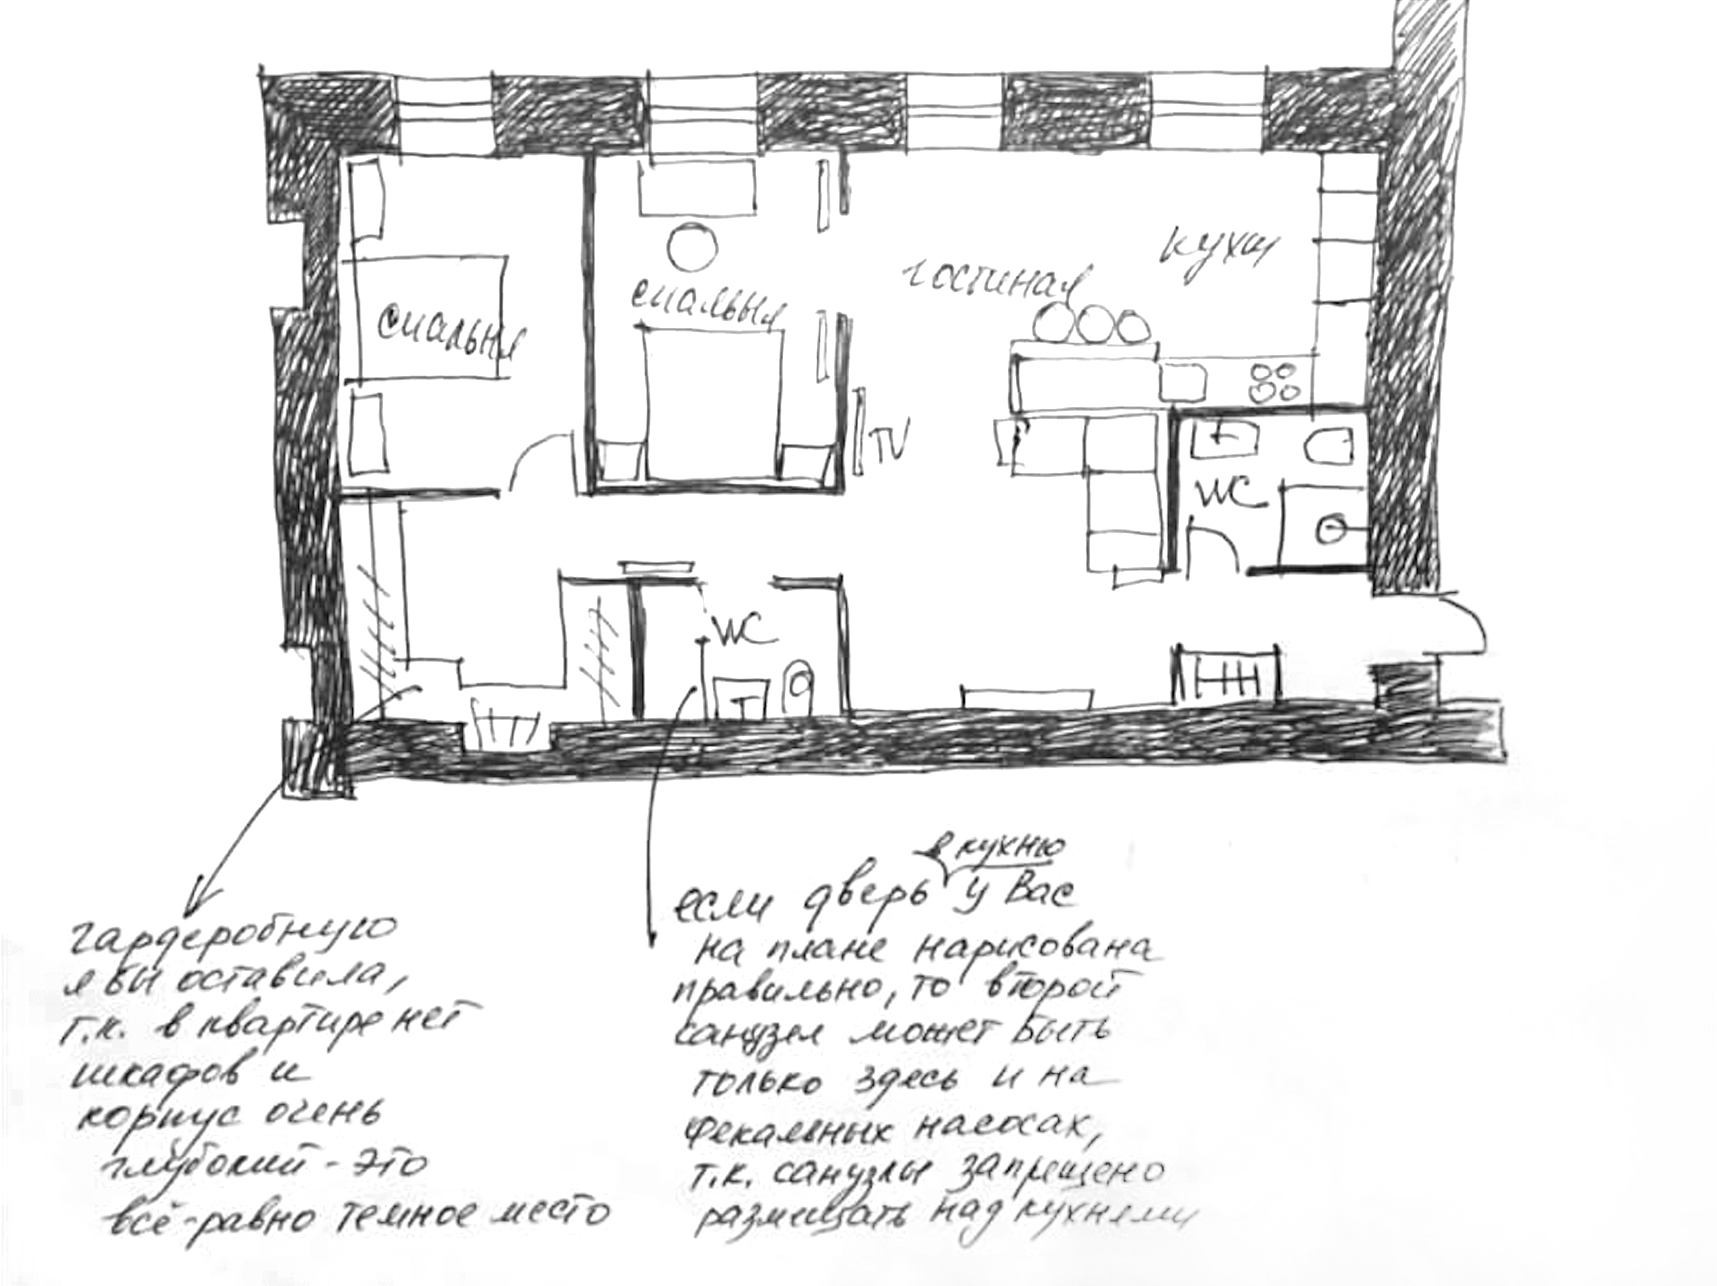 спальня
спальня
гостиная
кухня
TV
WC
WC
гардеробную
я бы оставила,
т.к. в квартире нет
шкафов и
корпус очень
глубокий - это
всё-равно темное место
в кухню
если дверь у Вас
на плане нарисована
правильно, то второй
санузел может быть
только здесь и на
фекальных насосах,
т.к. санузлы запрещено
размещать над кухнями